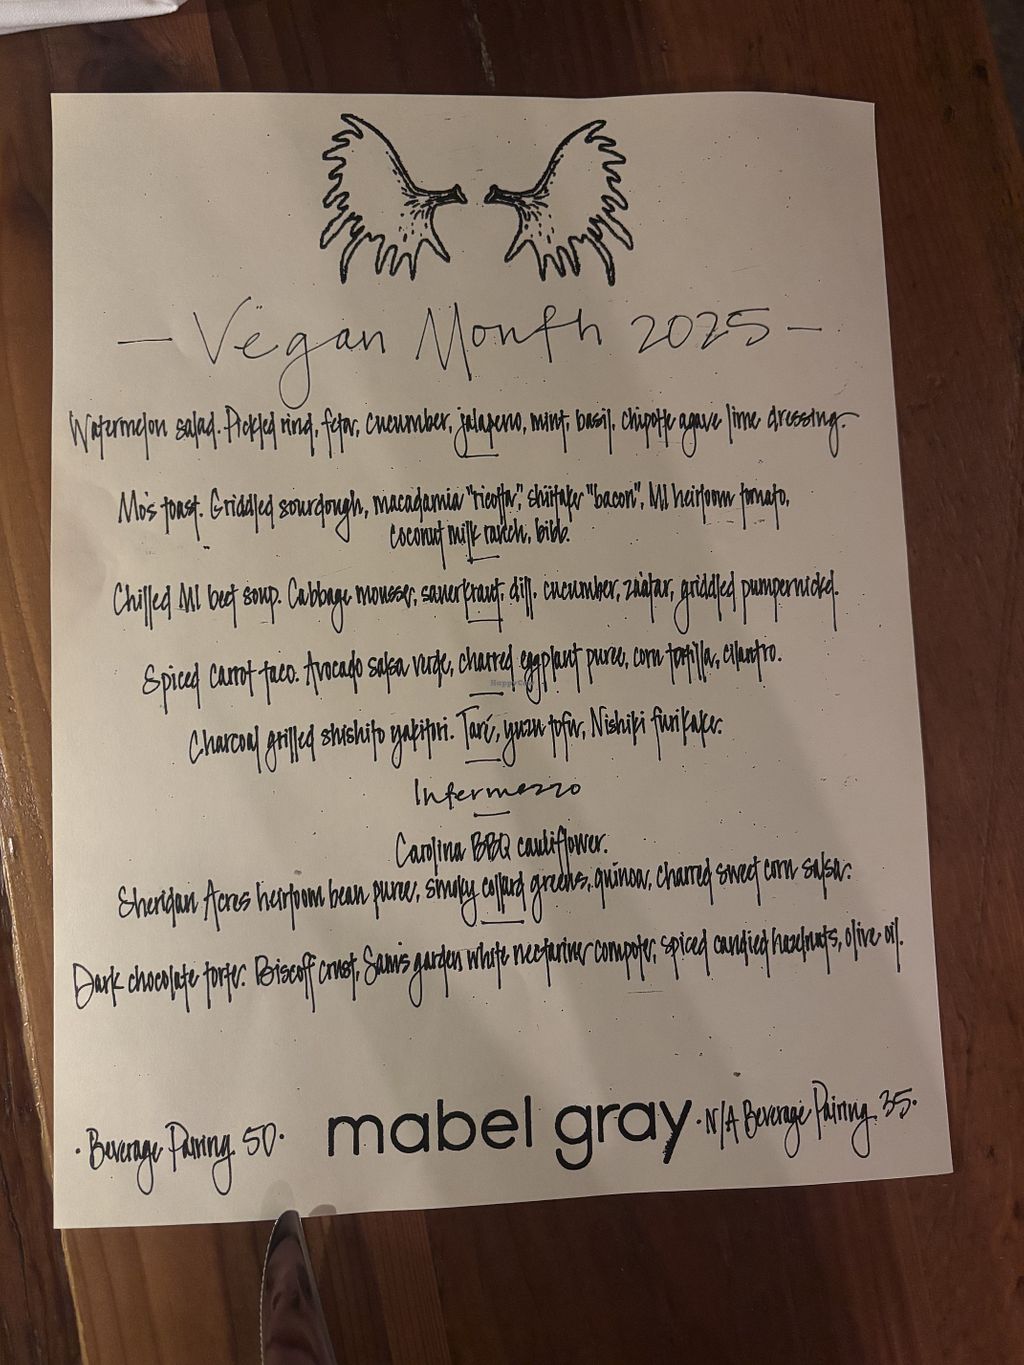 - Vegan Month 2025 -
Watermelon salad. Pickled rind, feta, cucumber, jalapeno, mint, basil, chipotle agave lime dressing.
Mo's toast. Griddled sourdough, macadamia "ricotta", shiitake "bacon", MI heirloom tomato,
coconut milk ranch, bibb.
Chilled MI beet soup. Cabbage mousse, sauerkraut, dill, cucumber, zaatar, griddled pumpernickel.
Spiced carrot taco. Avocado salsa verde, charred eggplant puree, corn tortilla, cilantro.
HappyCow
Charcoal grilled shishito yakitori. Taré, yuzu tofu, Nishiki furikake.
Intermezzo
Carolina BBQ cauliflower.
Sheridan Acres heirloom bean puree, smoky collard greens, quinoa, charred sweet corn salsa.
Dark chocolate torte. Biscoff crust, Sam's garden white nectarine compote, spiced candied hazelnuts, olive oil.
· Beverage Pairing 50 ·
mabel gray
· N/A Beverage Pairing 35 ·